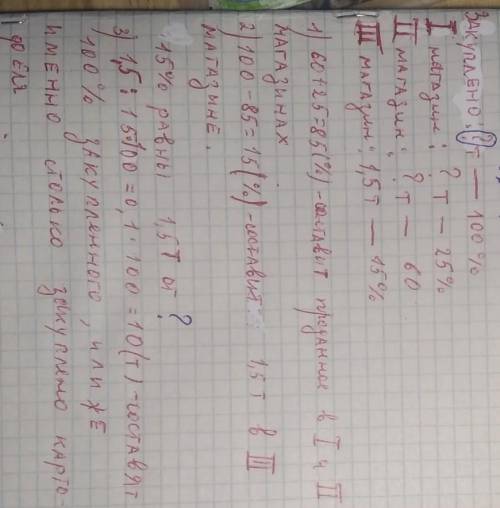 ЗАКУПЛЕНО: ? т — 100%
I магазин: ? т — 25%
II магазин: ? т — 60
III магазин: 1,5т — 15%
1) 60+25=85(%)-составит проданное в I и II
магазинах
2) 100-85=15(%)-составит 1,5т в III
магазине.
15% равны 1,5т от ?
3) 1,5:15·100=0,1·100=10(т)-составят
100% закупленного, или же
именно столько закуплено карто-
феля